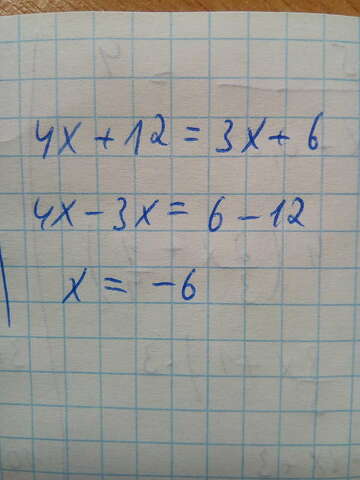 4x + 12 = 3x + 6
4x - 3x = 6 - 12
x = -6